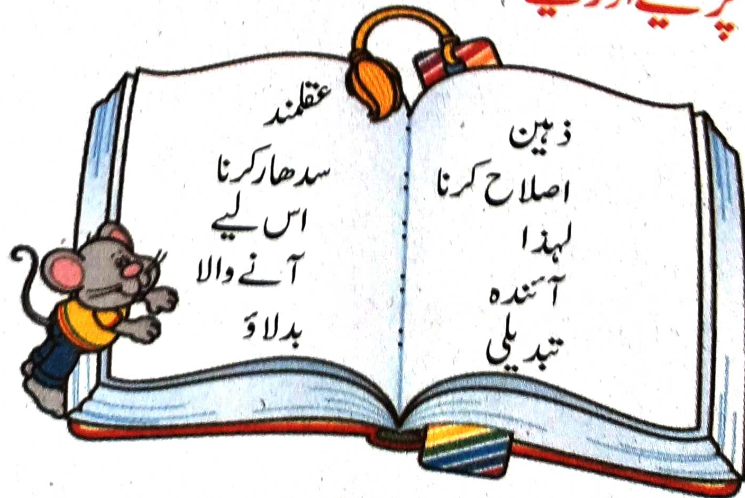 پڑھیے اور
ذہین
اصلاح کرنا
لہذا
آئندہ
تبدیلی
عقلمند
سدھار کرنا
اس لیے
آنے والا
بدلاؤ